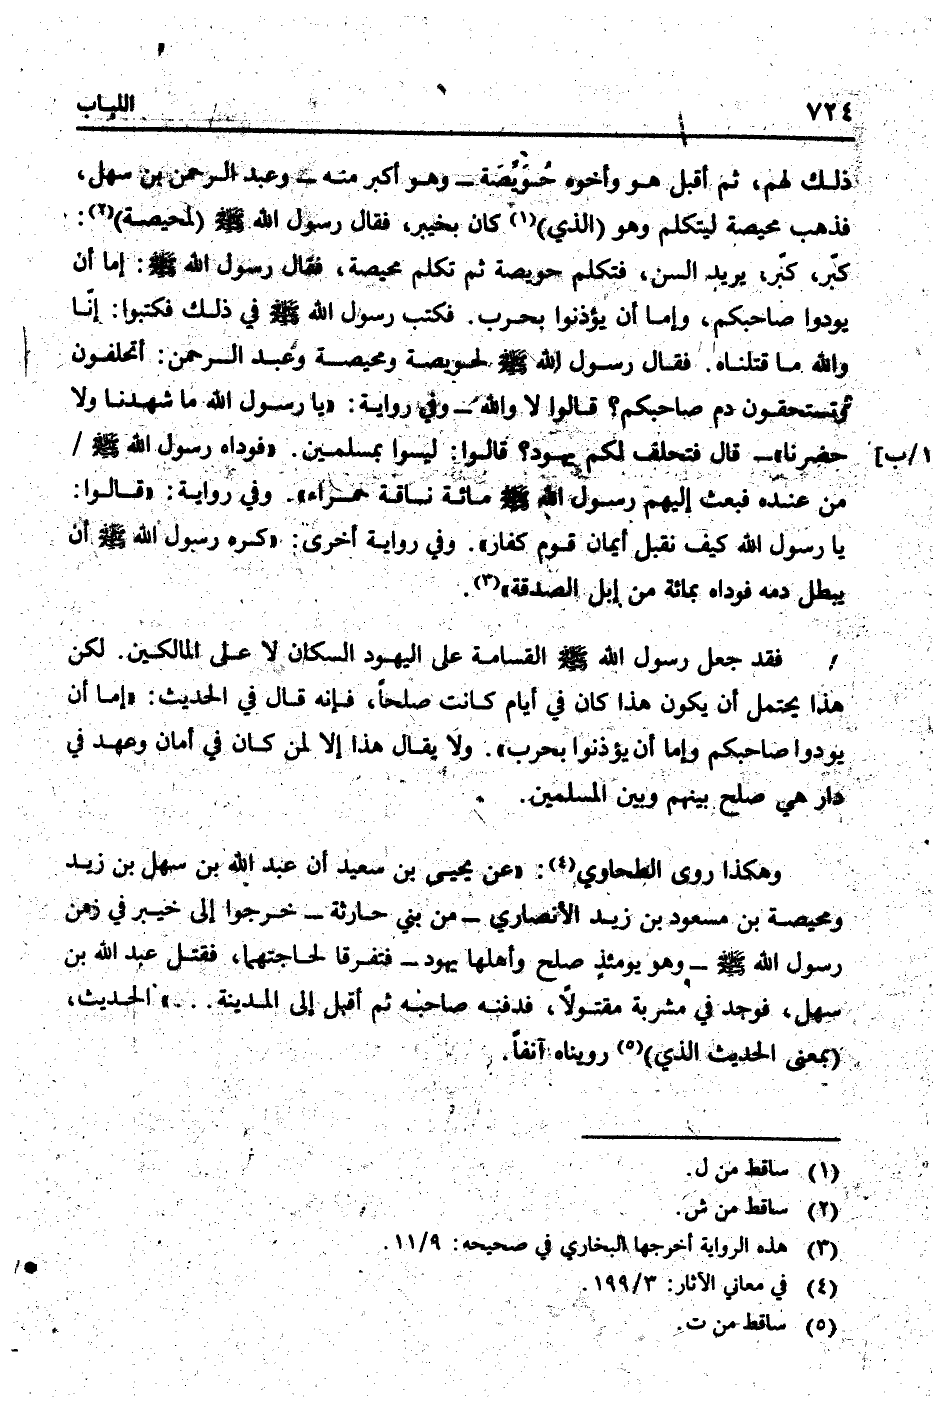 ٧٢٤
اللباب
ذلك لهم، ثم أقبل هو وأخوه حُوَيِّصَة ــ وهو أكبر منه ــ وعبد الرحمن بن سهل،
فذهب محيصة ليتكلم وهو (الذي)(١) كان بخيبر، فقال رسول الله ﷺ (لمحيصة)(٢):
كبّر، كبّر، يريد السن، فتكلم حويصة ثم تكلم محيصة، فقال رسول الله ﷺ: إما أن
يودوا صاحبكم، وإما أن يؤذنوا بحرب. فكتب رسول الله ﷺ في ذلك فكتبوا: إنّا
والله ما قتلناه. فقال رسول الله ﷺ لحويصة ومحيصة وعبد الرحمن: أتحلفون
وتستحقون دم صاحبكم؟ قالوا لا والله ــ وفي رواية: «يا رسول الله ما شهدنا ولا
حضرنا» ــ قال فتحلف لكم يهود؟ قالوا: ليسوا بمسلمين. «فوداه رسول الله ﷺ /
١/ب]
من عنده فبعث إليهم رسول الله ﷺ مائة ناقة حمراء». وفي رواية: «قالوا:
يا رسول الله كيف نقبل أيمان قوم كفار». وفي رواية أخرى: «كره رسول الله ﷺ أن
يبطل دمه فوداه بمائة من إبل الصدقة»(٣).
فقد جعل رسول الله ﷺ القسامة على اليهود السكان لا على المالكين. لكن
هذا يحتمل أن يكون هذا كان في أيام كانت صلحاً، فإنه قال في الحديث: «إما أن
يودوا صاحبكم وإما أن يؤذنوا بحرب». ولا يقال هذا إلا لمن كان في أمان وعهد في
دار هي صلح بينهم وبين المسلمين.
وهكذا روى الطحاوي(٤): «عن يحيى بن سعيد أن عبد الله بن سهل بن زيد
ومحيصة بن مسعود بن زيد الأنصاري ــ من بني حارثة ــ خرجوا إلى خيبر في زمن
رسول الله ﷺ ــ وهو يومئذٍ صلح وأهلها يهود ــ فتفرقا لحاجتهما، فقتل عبد الله بن
سهل، فوجد في مشربة مقتولاً، فدفنه صاحبه ثم أقبل إلى المدينة...» الحديث،
(بمعنى الحديث الذي)(٥) رويناه آنفاً.
(١) ساقط من ل.
(٢) ساقط من ش.
(٣) هذه الرواية أخرجها البخاري في صحيحه: ١١/٩.
(٤) في معاني الآثار: ١٩٩/٣.
(٥) ساقط من ت.